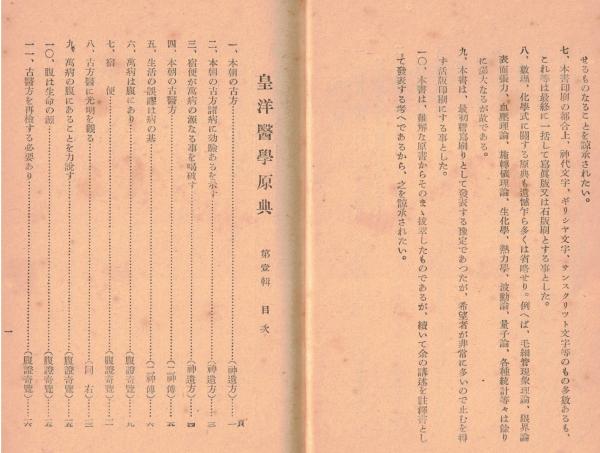 せるものなることを諒承されたい。
七、本書印刷の都合上、神代文字、ギリシヤ文字、サンスクリット文字等のもの多數あるも、
これ等は最終に一括して寫眞版又は石版刷とする事とした。
八、數理、化學式に關する原典も遺憾乍ら多くは省略せり。例へば、毛細管現象理論、限界論
表面張力、血壓理論、施轉儀理論、生化學、熱力學、波動論、量子論、各種統計等々は餘り
に厖大なるが故である。
九、本書は、最初謄寫刷りとして發表する豫定であつたが、希望者が非常に多いので止むを得
ず活版印刷にする事とした。
一〇、本書は、難解な原書からそのまゝ拔萃したものであるが、續いて余の講述を註釋書とし
て發表する考へであるから、之を諒承されたい。
皇洋醫學原典 第壹輯 目次
頁
一、本朝の古方……(神遺方)…一
二、本朝の古方諸病に効驗あるを示す……(神遺方)…三
三、宿便が萬病の源なる事を喝破す……(神遺方)…四
四、本朝の古醫方……(二神傳)…五
五、生活の誤謬は病の基……(二神傳)…六
六、萬病は腹にあり……(腹證奇覽)…九
七、宿便……(腹證奇覽)…二
八、古方醫に光明を觀る……(同右)…三
九、萬病の腹にあることを力說す……(腹證奇覽)…五
一〇、腹は生命の源……(腹證奇覽)…五
一一、古醫方を再檢する必要あり……(腹證奇覽)…六
一